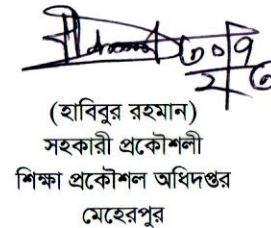 (হাবিবুর রহমান)
সহকারী প্রকৌশলী
শিক্ষা প্রকৌশল অধিদপ্তর
মেহেরপুর